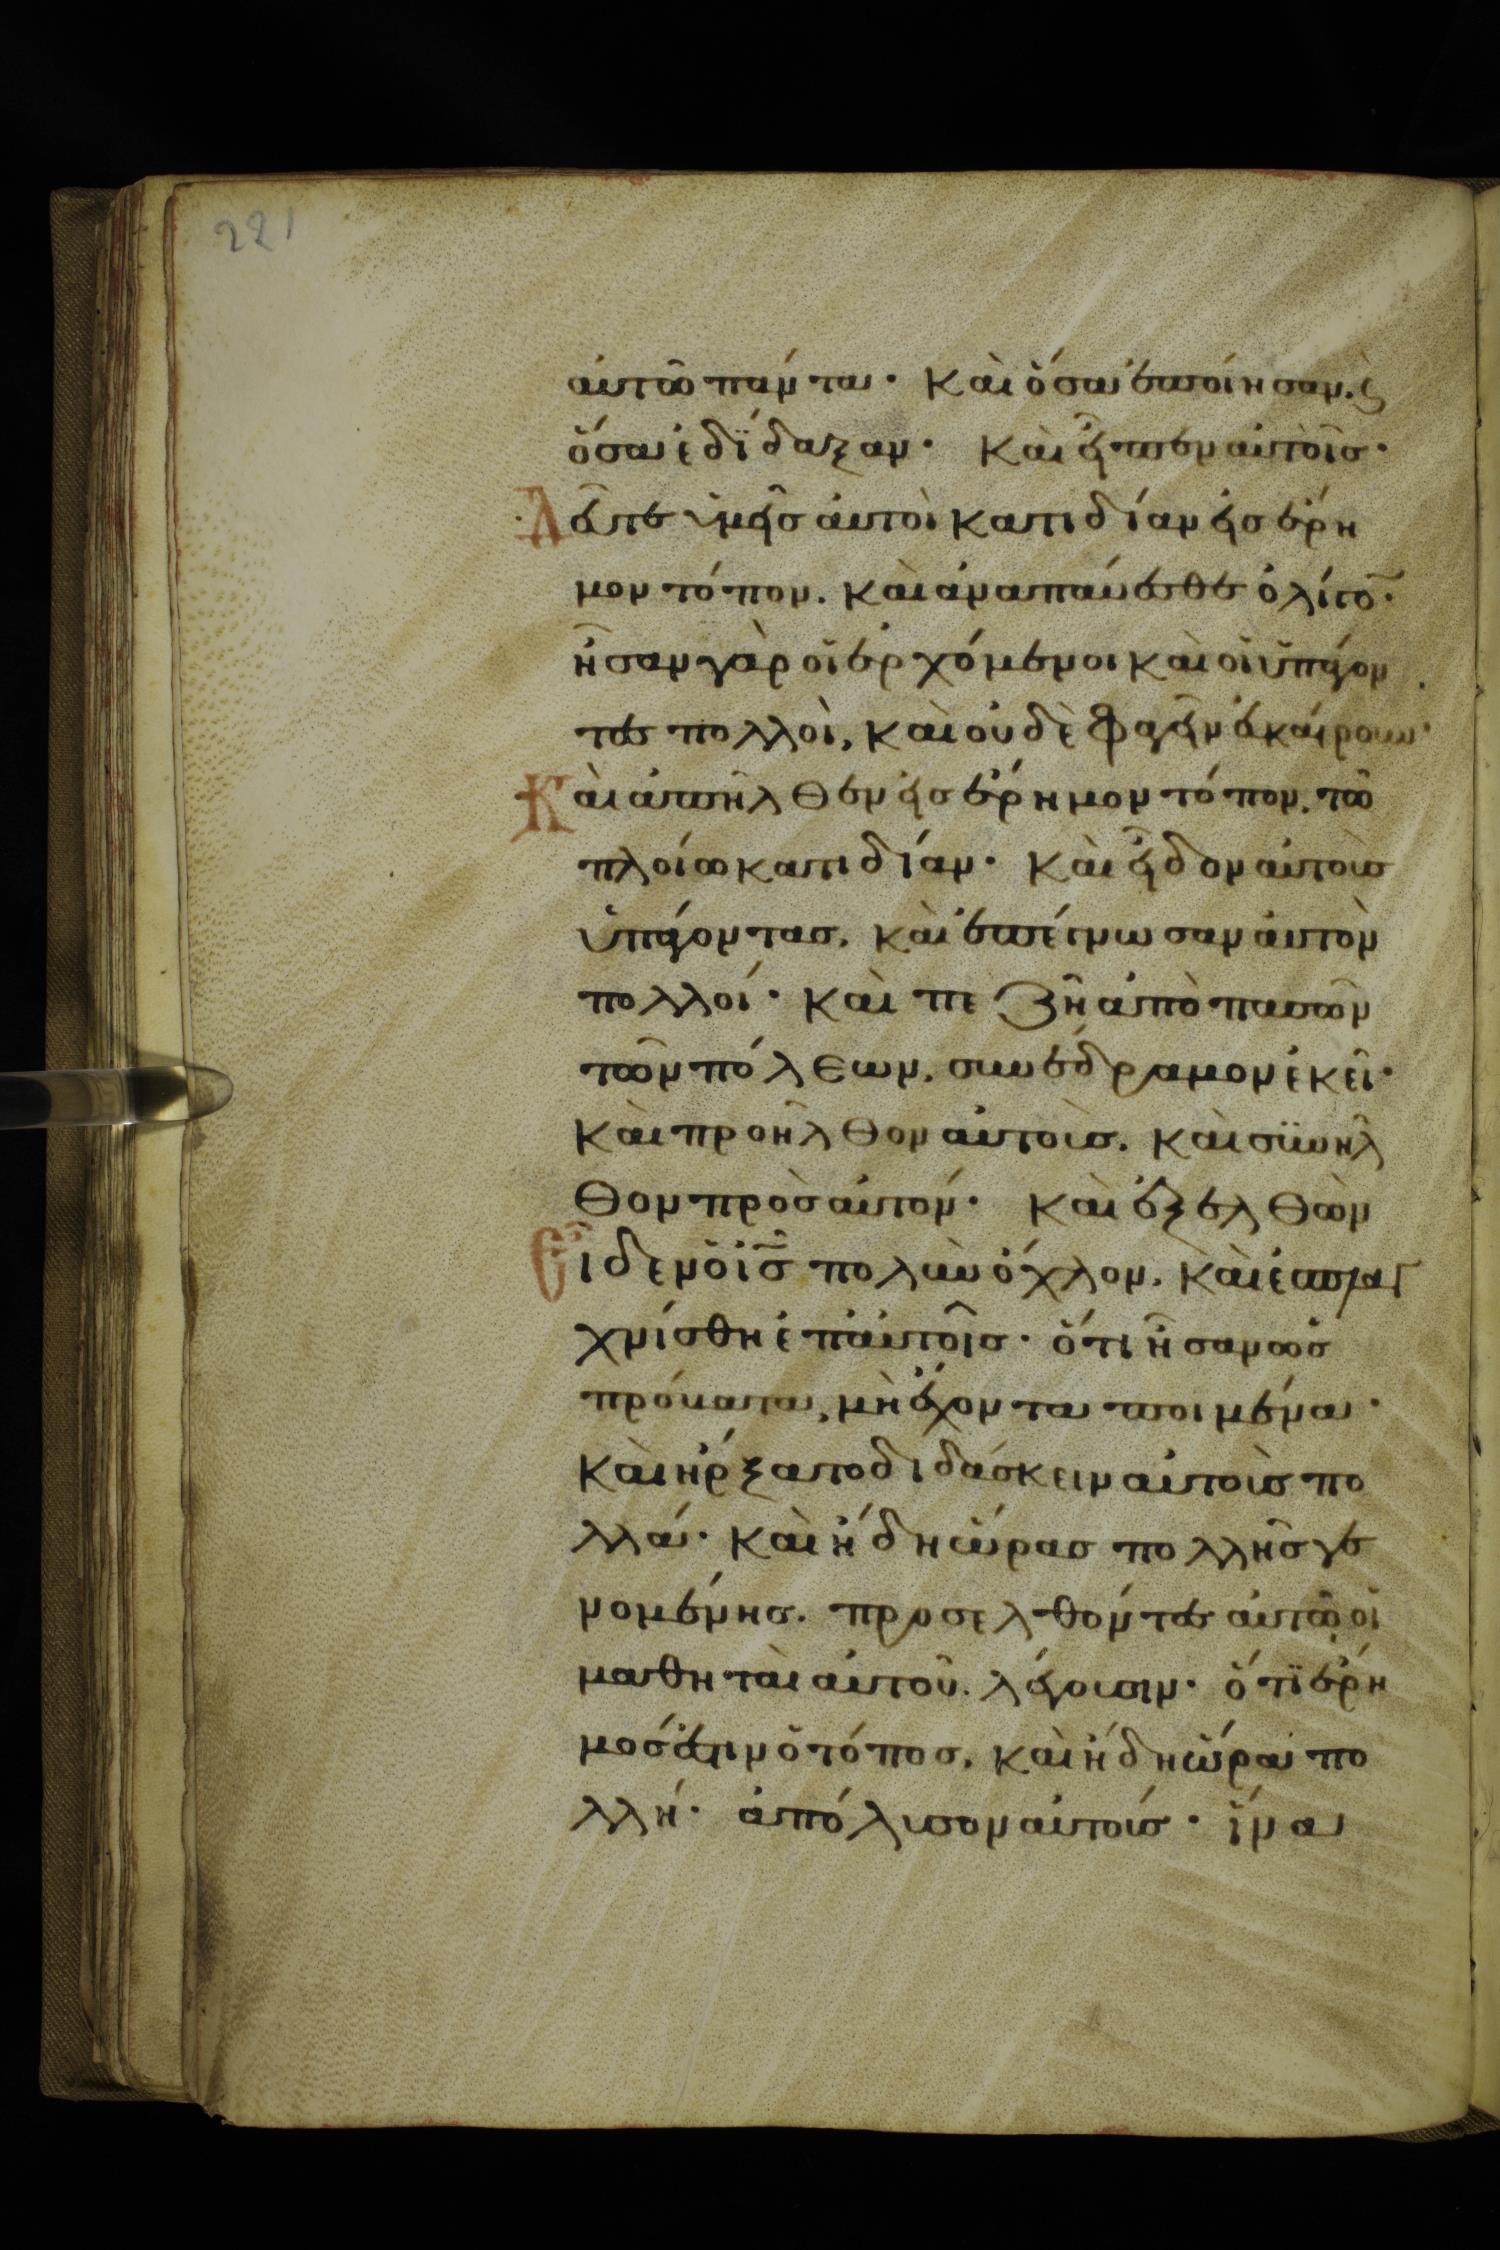 221
αὐτῶ πάντα· καὶ ὅσα ἐποίησαν. ϗ
ὅσα ἐδίδαξαν· καὶ εἶπεν αὐτοῖσ·
Δεῦτε ὑμεῖσ αὐτοὶ κατιδίαν εἰσ ἔρη
μον τόπον. καὶ ἀναπαύεσθε ὀλίγο̅·
ἦσαν γὰρ οἱ ἐρχόμενοι καὶ οἱ ὑπάγον
τεσ πολλοὶ, καὶ οὐδὲ φαγεῖν εὐκαίρουν·
Καὶ ἀπῆλθεν εἰσ ἔρημον τόπον. τῶ
πλοίω κατιδίαν· καὶ εἶδον αὐτοὺσ
ὑπάγοντασ. καὶ ἐπέγνωσαν αὐτὸν
πολλοί· καὶ πεζῆ ἀπὸ πασῶν
τῶν πόλεων. συνέδραμον ἐκεῖ·
καὶ προῆλθον αὐτοὺσ. καὶ συνῆλ
θον πρὸσ αὐτόν· καὶ ἐξελθὼν
Εἶδεν ὁ ἰ̅σ̅ πολὺν ὄχλον. καὶ ἐσπλαγ
χνίσθη ἐπ' αὐτοῖσ· ὅτι ἦσαν ὡσ
πρόβατα, μὴ ἔχοντα ποιμένα·
καὶ ἤρξατο διδάσκειν αὐτοὺσ πο
λλά· καὶ ἤδη ὥρασ πολλῆσ γε
νομένησ. προσελθόντεσ αὐτῶ οἱ
μαθηταὶ αὐτοῦ. λέγουσιν· ὅτι ἔρη
μοσ ἐστιν ὁ τόποσ, καὶ ἤδη ὥρα πο
λλή· ἀπόλυσον αὐτούσ· ἵνα